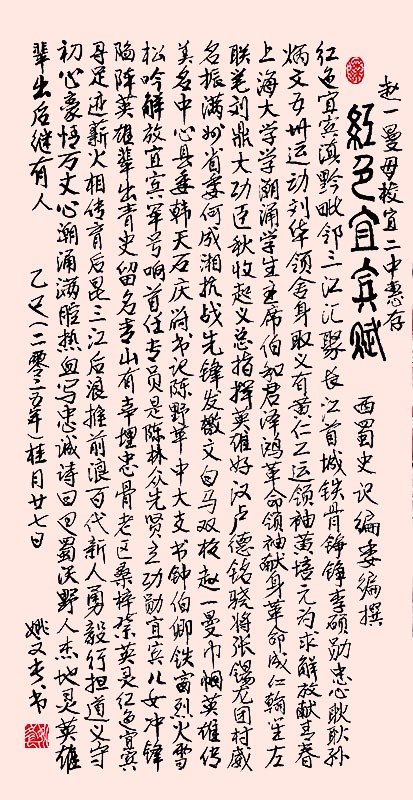 赵一曼母校宜二中惠存
红色宜宾赋
西蜀史记编委编撰
红色宜宾滇黔毗邻三江汇聚长江首城铁骨铮锋李硕勋忠心耿耿孙
炳文五卅运动刘华领舍身取义有黄仁工运领袖黄培元为求解放献青春
上海大学学潮涌学生主席伯和君泽鸿革命领袖献身革命成仁翰笙左
联笔刘鼎大功臣秋收起义总指挥英雄好汉卢德铭骁将张锡龙团村威
名振满州省委何成湘抗战先锋发檄文白马双枪赵一曼巾帼英雄传
美名中心县委韩天石庆符书记陈野苹中大支书钟伯卿铁窗烈火雪
松吟解放宜宾军号响首任专员是陈林众先贤立功勋宜宾儿女冲锋
陷阵英雄辈出青史留名青山有幸埋忠骨老区桑梓祭英灵红色宜宾
寻足迹薪火相传育后昆三江后浪推前浪百代新人勇毅行担道义守
初心豪情万丈心潮涌满腔热血写忠诚诗曰曰蜀沃野人杰地灵英雄
辈出后继有人
乙巳(二零二五年)桂月廿七日
姚又春书